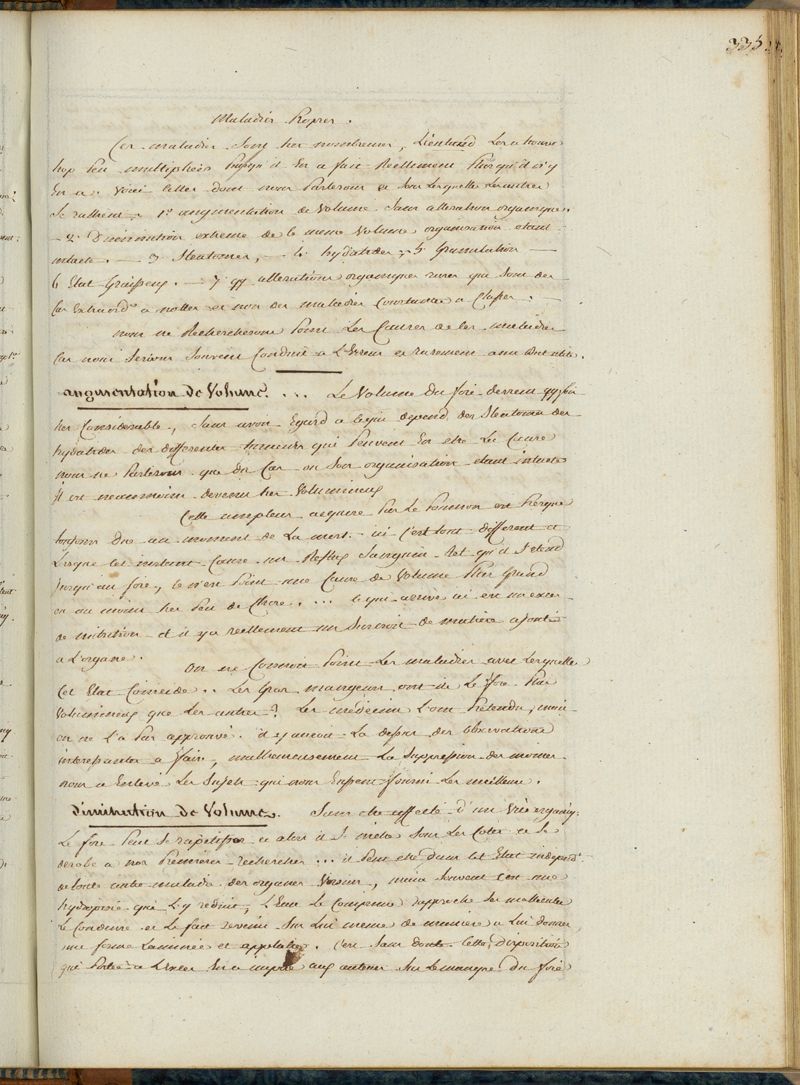 335
Maladies Propres.
Ces maladies sont tres nombreuses, Lieutaud les a trouvé
trop peu multipliées puisqu'il en a fait reellement plus qu'il n'y
en a. Voici celles dont nous parlerons et sous lesquelles les autres
se rallient. 1° augmentation de Volume sans alteration organique.
— 2° Diminution extreme de le meme Volume organisation etant
intacte. — 3 Steatomes, — 4 hydatides, 5 Granulation —
6 Etat Graisseux. — 7 qq alterations organiques rares qui sont des
cas Extraord. a notter et non des maladies Constantes a Classer. —
nous ne Rechercherons point Les Causes de ces maladies
Car nous serions souvent Conduit a L'Erreur et rarement a une utilité.
augmentation de Volume. ... Le Volume du foie devient qqfois
tres Considerable, sans avoir Egard a ce qui depend des Steatomes des
hydatides des differentes tumeurs qui peuvent en etre La Cause
nous ne parlerons que du Cas ou son organisation etant intacte
il est neanmoins devenu tres Volumineux
Cette ampleur acquise par le Poumon est presque
toujours due au moment de La mort. ici c'est tout different et
lorsque cet instant Cause un Reflux sanguin tel qu'il s'etend
jusqu'au foie, ce n'est point une Cause de Volume plus Grand
ou au moins tres peu de chose. ... ce qui arrive ici est un exces
de nutrition et il y a reellement un surcroit de matiere ajouté
a L'organe.
On ne Connoit point Les maladies avec Lesquelles
Cet Etat Coincide.. Les Gros mangeurs ont ils Le foie plus
Volumineux que Les autres? Les medecins L'ont Pretendu, mais
on ne L'a pas approuvé. il y auroit La dessus des observations
interessantes a faire, malheureusement La Suppression des moines
nous a Enlevé Les Sujets qui nous Eussent fourni Les meilleures.
Diminution de Volume. Sans etre affecté d'un Vice organiq.
Le foie Peut se rapetisser et alors il se retire sous Les Cotes et se
derobe a nos Premieres recherches ... il Peut etre dans cet Etat independ.
de toute autre maladie des organes Voisins, mais souvent c'est une
hydropisie qui L'y reduit, L'Eau Le Comprime rapproche ses molecules
Le Condense et Le fait revenir sur Lui meme de maniere a Lui donner
une forme Laminée et applatie. c'est sans doute Cette disposition
qui Portée a L'exces en a imposé aux auteurs sur Le manque du foie